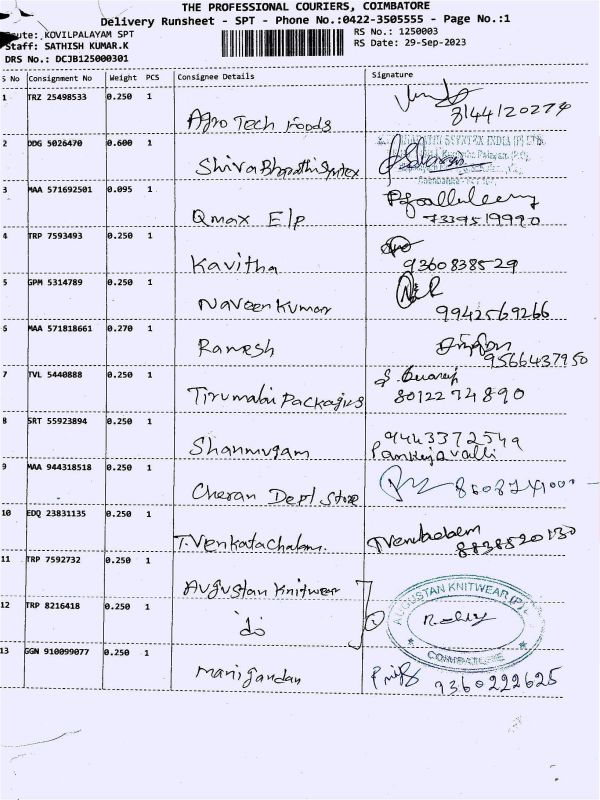 THE PROFESSIONAL COURIERS, COIMBATORE
Delivery Runsheet - SPT - Phone No.:0422-3505555 - Page No.:1
Route: KOVILPALAYAM SPT
RS No.: 1250003
Staff: SATHISH KUMAR.K
RS Date: 29-Sep-2023
DRS No.: DCJB125000301
S No Consignment No Weight PCS Consignee Details Signature
1 TRZ 25498533 0.250 1 Agro Tech Foods
8144120274
2 DDG 5026470 0.600 1 Shiva Bharathi Syntex
3 MAA 571692501 0.095 1 Qmax E/p
7339519990
4 TRP 7593493 0.250 1 Kavitha
9360838529
5 GPM 5314789 0.250 1 Naveen Kumar
9942569266
6 MAA 571818661 0.270 1 Ramesh
9566437950
7 TVL 5440888 0.250 1 Tirumalai Packagings
8012274890
8 SRT 55923894 0.250 1 Shanmugam
9443372549
Pankajavalli
9 MAA 944318518 0.250 1 Cheran Dept Store
10 EDQ 23831135 0.250 1 T. Venkatachalam.
8838520130
11 TRP 7592732 0.250 1 Augustan Knitwear
12 TRP 8216418 0.250 1 do
2
AUGUSTAN KNITWEAR (P)
COIMBATORE
13 GGN 910099077 0.250 1 Manigandan
9360222625